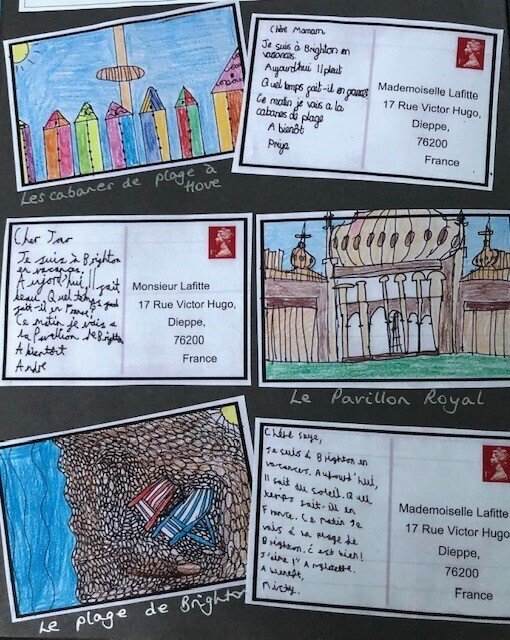 Chère Maman
Je suis à Brighton en
vacances.
Aujourd'hui Il pleut
Quel temps fait-il en
Ce matin je vais a la
cabanes de plage
A bientôt
Priya
Mademoiselle Lafitte
17 Rue Victor Hugo,
Dieppe,
76200
France
Les cabanes de plage à
Hove
Cher
Je suis à Brighton
en vacances.
Aujord'hui, Il fait
beau. Quel temps
fait-il en France?
Ce matin je vais a
la Pavillon de Brighton
A bientôt
André
Monsieur Lafitte
17 Rue Victor Hugo,
Dieppe,
76200
France
Le Pavillon Royal
Chère
Je suis à Brighton en
vacances. Aujourd'hui,
Il fait du soleil. Quel
temps fait-ill en
France. Ce matin Je
vais à la plage de
Brighton, C'est bien!
J'aime l'Angleterre.
A bientôt,
Mademoiselle Lafitte
17 Rue Victor Hugo,
Dieppe,
76200
France
Le plage de Brighton